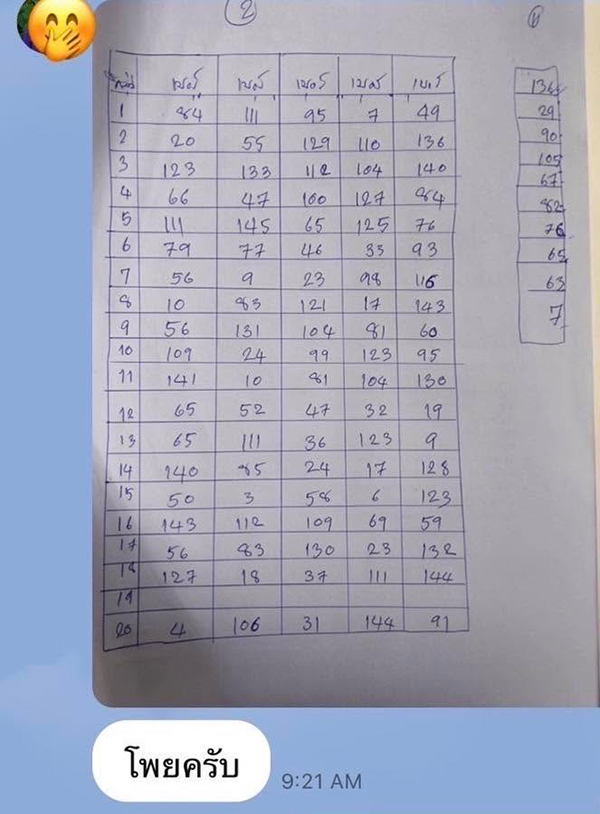 2
เบอร์ เบอร์ เบอร์ เบอร์ เบอร์
1 84 111 95 7 49
2 20 55 129 110 136
3 123 133 112 104 140
4 66 47 100 127 84
5 111 145 65 125 76
6 79 77 46 33 93
7 56 9 23 98 116
8 10 83 121 17 143
9 56 131 104 81 60
10 109 24 99 123 95
11 141 10 81 104 130
12 65 52 47 32 19
13 65 111 36 123 9
14 140 85 24 17 128
15 50 3 58 6 123
16 143 112 109 69 59
17 56 83 130 23 132
18 127 18 37 111 144
19
20 4 106 31 144 91
136
29
90
105
67
82
76
65
63
7
โพยครับ
9:21 AM